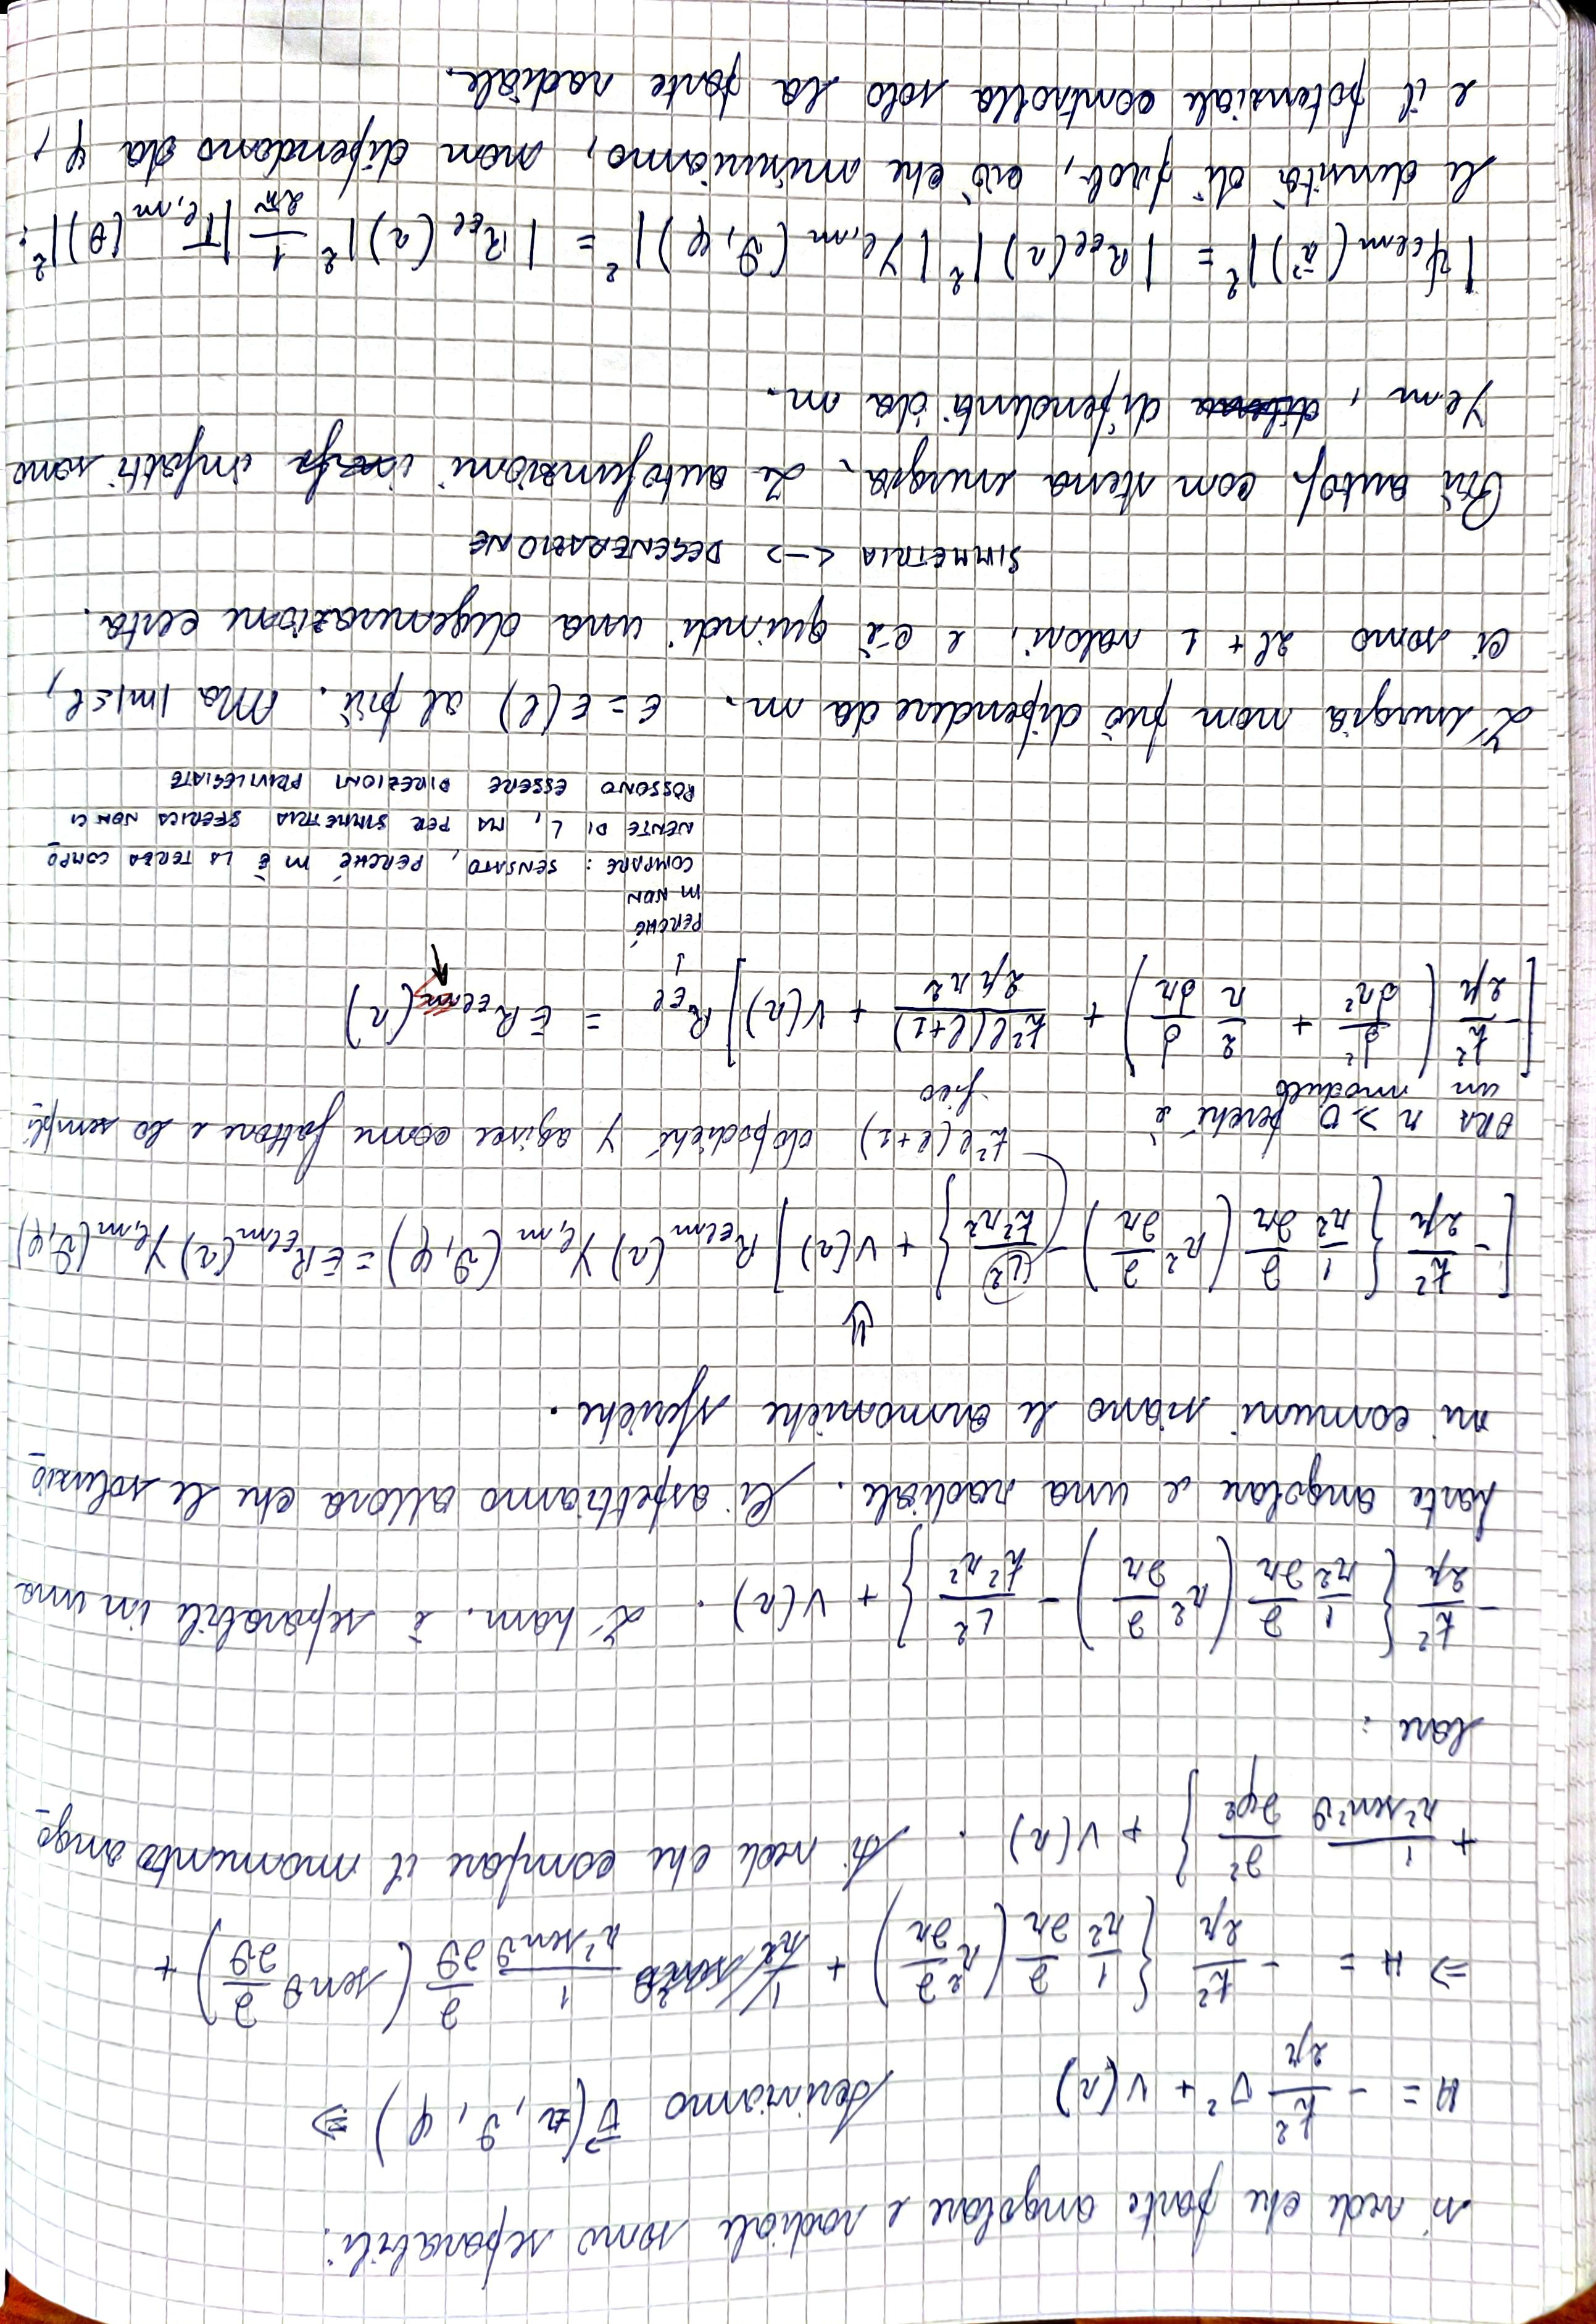 si vede che parte angolare e radiale sono separabili:
H = - ħ²/2μ ∇² + V(r) Scriviamo ∇⃗(r, ϑ, φ) ⇒
⇒ H = - ħ²/2μ { 1/r² ∂/∂r (r² ∂/∂r) + 1/(r² senϑ) ∂/∂ϑ (senϑ ∂/∂ϑ) +
+ 1/(r² sen²ϑ) ∂²/∂φ² } + V(r) . Si vede che compare il momento ango
lare :
- ħ²/2μ { 1/r² ∂/∂r (r² ∂/∂r) - L²/(ħ²r²) } + V(r) . L'ham. è separabile in una
parte angolare e una radiale. Ci aspettiamo allora che le soluzio
ni comuni siano le armoniche sferiche.
⇓
[ - ħ²/2μ { 1/r² ∂/∂r (r² ∂/∂r) - L²/(ħ²r²) } + V(r) ] R_Elm(r) Y_l,m(ϑ,φ) = E R_Elm(r) Y_l,m(ϑ,φ)
ORA r ≥ 0 perché è ħ²l(l+1) dopodiché Y agisce come fattore e lo sempli
un modulo fico
[ - ħ²/2μ ( d²/dr² + 2/r d/dr ) + ħ²l(l+1)/(2μr²) + V(r) ] R_El = E R_Elm(r)
↓
PERCHÉ
M NON
COMPARE : SENSATO, PERCHÉ M È LA TERZA COMPO
NENTE DI L, MA PER SIMMETRIA SFERICA NON CI
POSSONO ESSERE DIREZIONI PRIVILEGIATE
L'energia non può dipendere da m. E = E(l) al più. Ma |m|≤l,
ci sono 2l + 1 valori, e c'è quindi una degenerazione certa.
SIMMETRIA <-> DEGENERAZIONE
Più autof. con stessa energia. Le autofunzioni infatti sono
Y_l,m , dipendenti da m.
|ψ_Elm(r⃗)|² = |R_El(r)|² |Y_l,m(ϑ,φ)|² = |R_El(r)|² 1/2π |Γ_l,m(θ)|² :
le densità di prob, ciò che misuriamo, non dipendono da φ,
e il potenziale controlla solo la parte radiale.